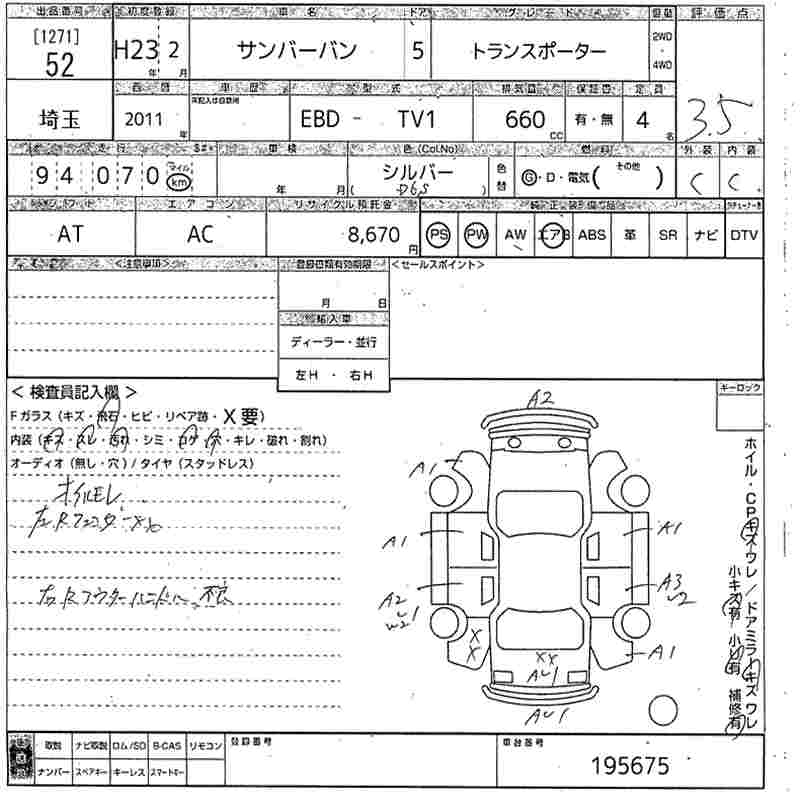 出品番号 初度登録 車名 ドア グレード 駆動 評価点
[1271] 52 H23 2 年 月 サンバーバン 5 トランスポーター 2WD ・ 4WD 3.5
西暦 車歴 型式 排気量 保証書 定員
埼玉 2011 年 EBD - TV1 660 CC 有・無 4 名
走行 車検 色(Col.No) 燃料 外装 内装
94070 マイル km 年 月 シルバー (D6S) 色替 G・D・電気( その他 ) C C
シフト エアコン リサイクル預託金 純正装備品
AT AC 8,670 円 PS PW AW エアB ABS 革 SR ナビ DTV
<注意事項> 登録書類有効期限 <セールスポイント>
月 日
輸入車
ディーラー・並行
左H ・ 右H
< 検査員記入欄 > キーロック
Fガラス (キズ・飛石・ヒビ・リペア跡・X要)
内装 (キズ・スレ・汚れ・シミ・コゲ・穴・キレ・破れ・割れ)
オーディオ (無し・穴) / タイヤ (スタッドレス)
オイルモレ
左Rフェンダー
左Rアウターハンドル不良
A2
A1
A1 A1
A2 A3
W2
XX XX
AU1 A1
AU1
ホイル・CPキズワレ / ドアミラーキズワレ
小キズ有 小凹有 補修有
取説 ナビ取説 ロム/SD B-CAS リモコン 登録番号 車台番号
ナンバー スペアキー キーレス スマートキー 195675